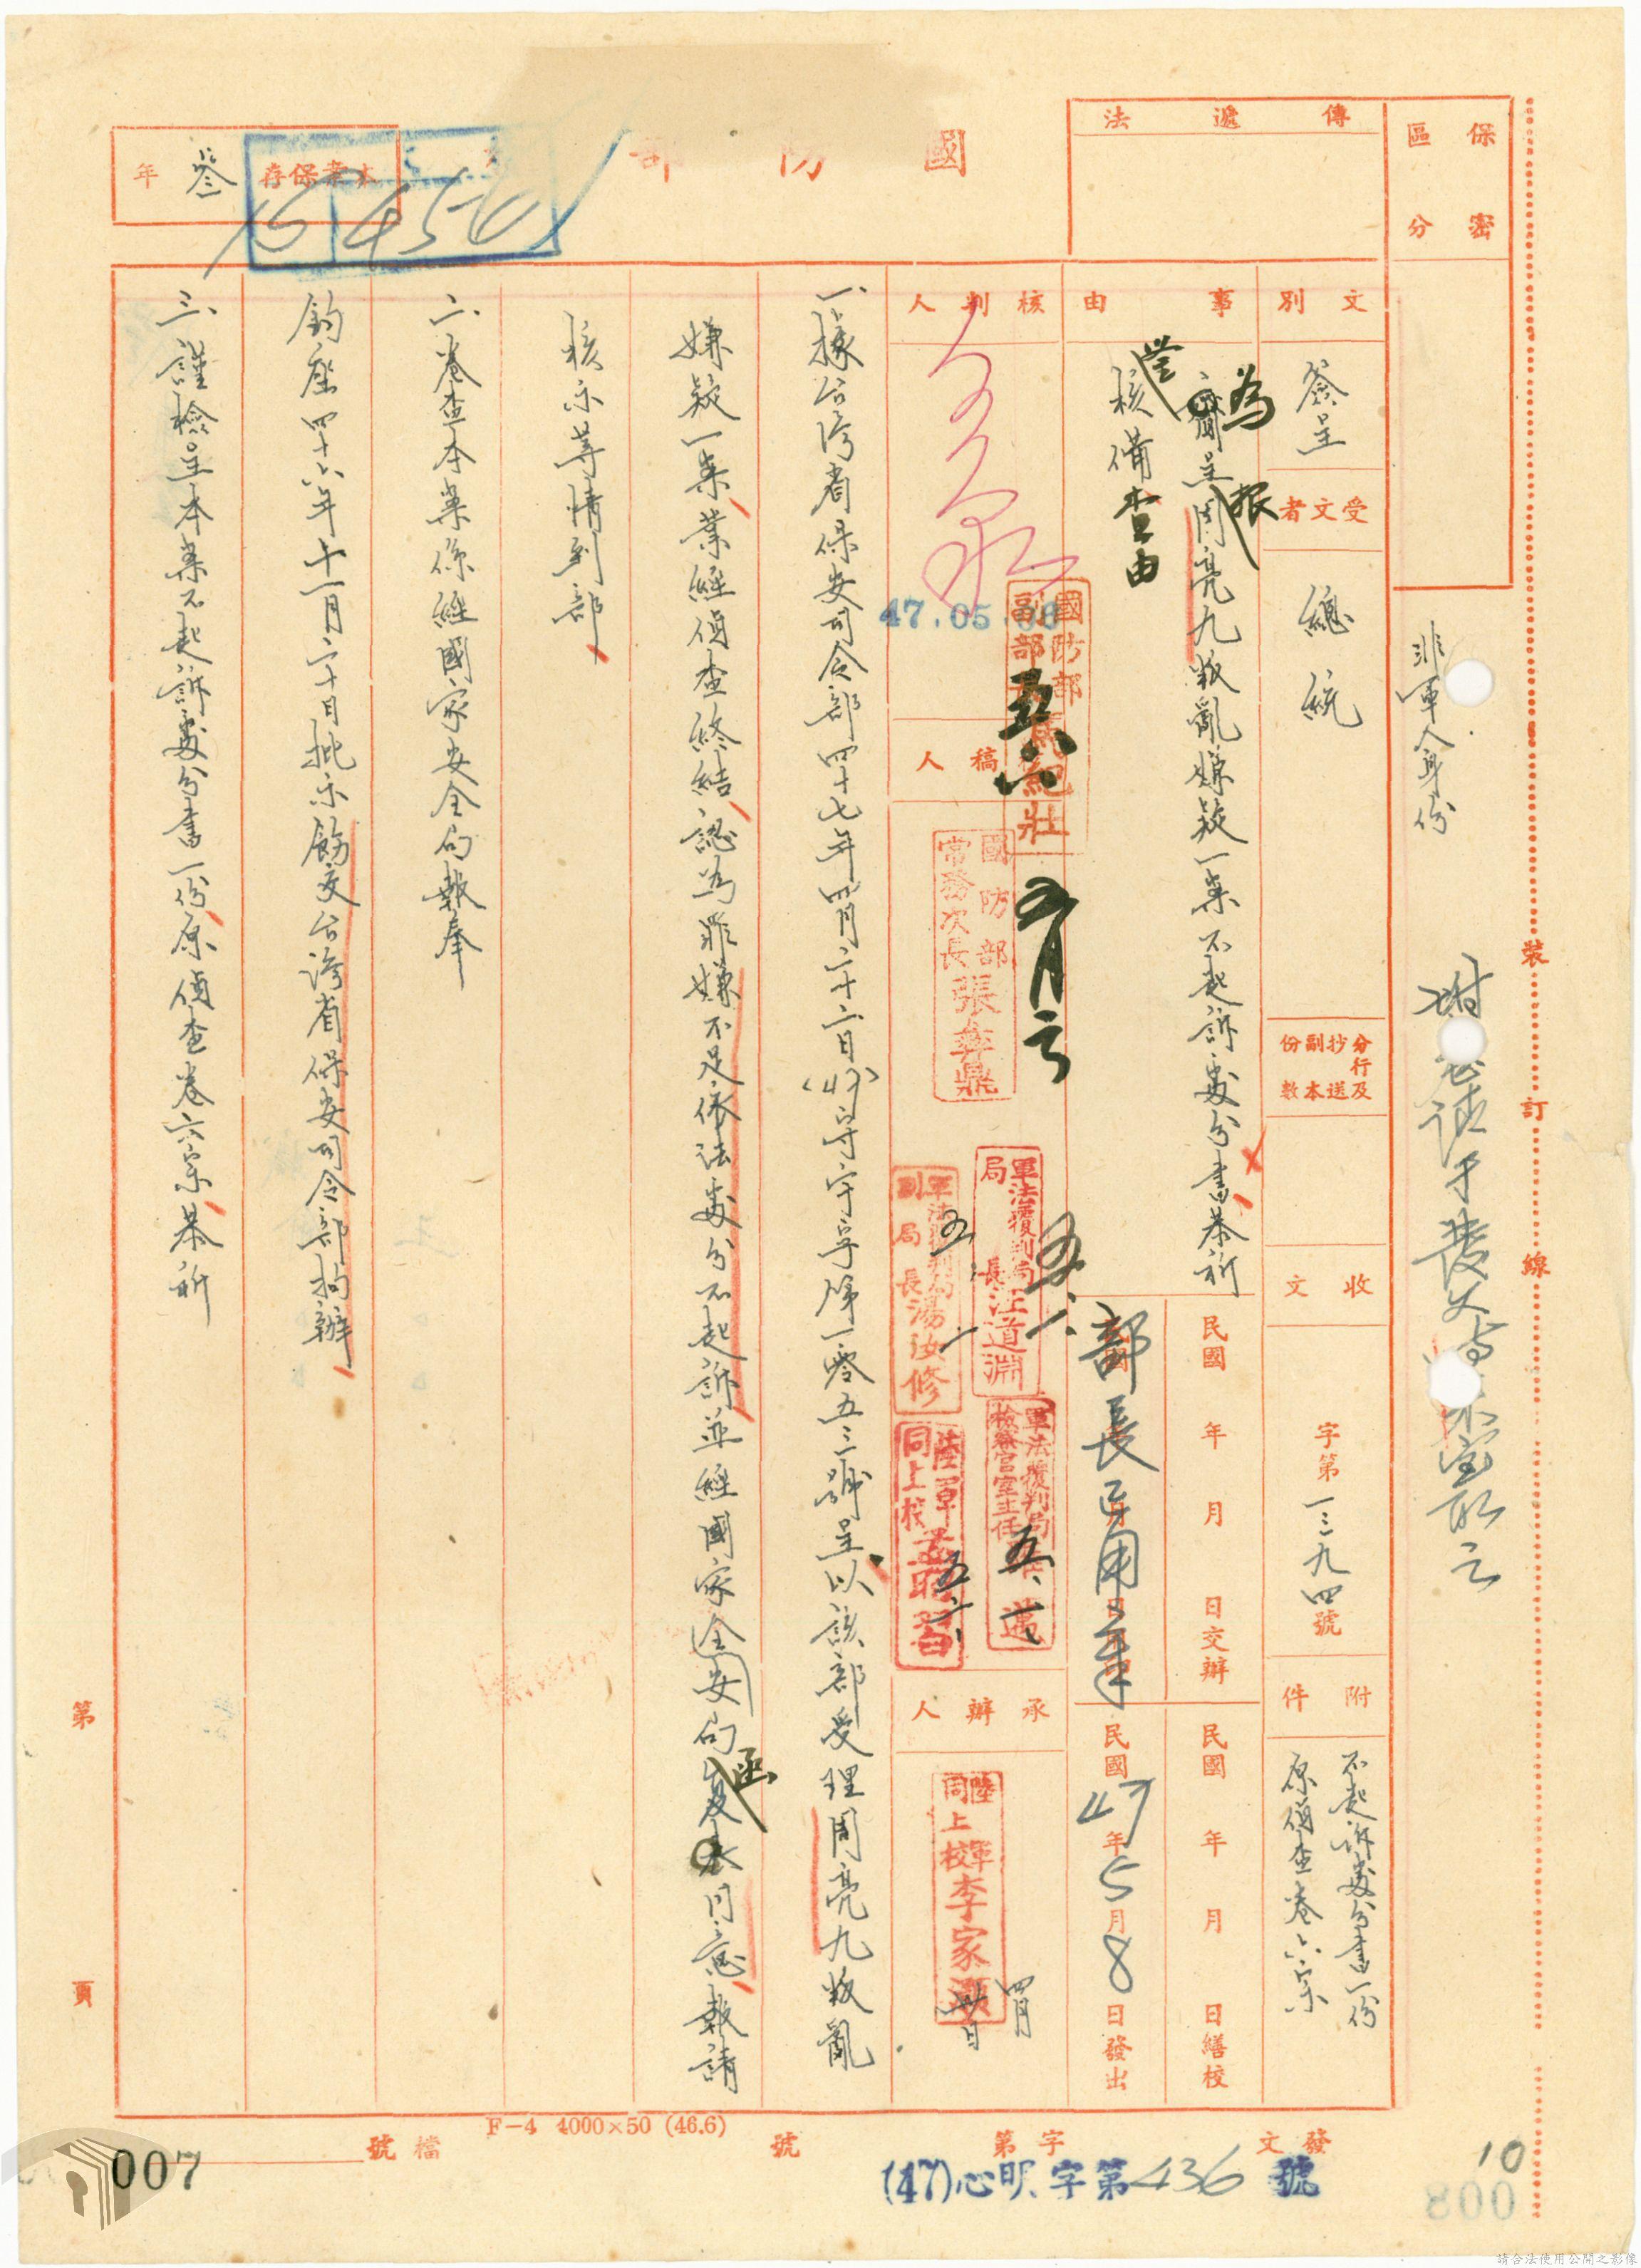 保密
區分
傳遞法
國防部
本案保存
叁
年
15 450
非軍人身份
裝
訂
線
文別
簽呈
受文者
總統
分行及
抄送
副本
份數
收文
字第一三九四號
附件
不起訴處分書一份
原偵查卷六宗
事由
為賷呈周亮九叛亂嫌疑一案不起訴處分書恭祈
核備由
民國 年 月 日交辦
民國 年 月 日繕校
部長
民國47年5月8日發出
核判人
47.05.08
國防部
副部
馬紀壯
五月
稿人
國防部
常務次長張彝鼎
軍法覆判局
局長汪道淵
軍法覆判局
副局長湯汝修
軍法覆判局
檢察官室主任
陸軍
同上校
承辦人
陸軍
同上校李家灝
四月
一、據台灣省保安司令部四十七年四月二十六日(47)字第一零五三號呈以該部受理周亮九叛亂
嫌疑一案業經偵查終結認為罪嫌不足依法處分不起訴並經國家安全局函同意報請
核示等情到部
二、卷查本案係經國家安全局報奉
鈞座四十六年十一月二十日批示飭交台灣省保安司令部拘辦
三、謹檢呈本案不起訴處分書一份原偵查卷六宗恭祈
第 頁
F-4 4000×50 (46.6)
檔號
發文 字第 號
(47)心明字第436號
007
10
008
請合法使用公開之影像